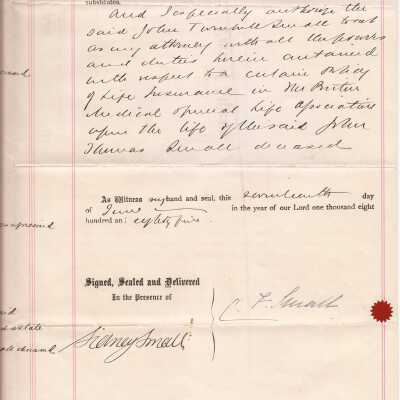 substitutes.
And I especially authorize the
said John Turnbull Small to act
as my attorney with all the powers
and duties herein contained
with respect to a certain Policy
of Life Insurance in The Briton
Medical General Life Association
upon the life of the said John
Thomas Small deceased
As Witness my hand and seal, this seventeenth day
of June in the year of our Lord one thousand eight
hundred and eighty five.
Signed, Sealed and Delivered
In the Presence of
C. F. Small
Sidney Small